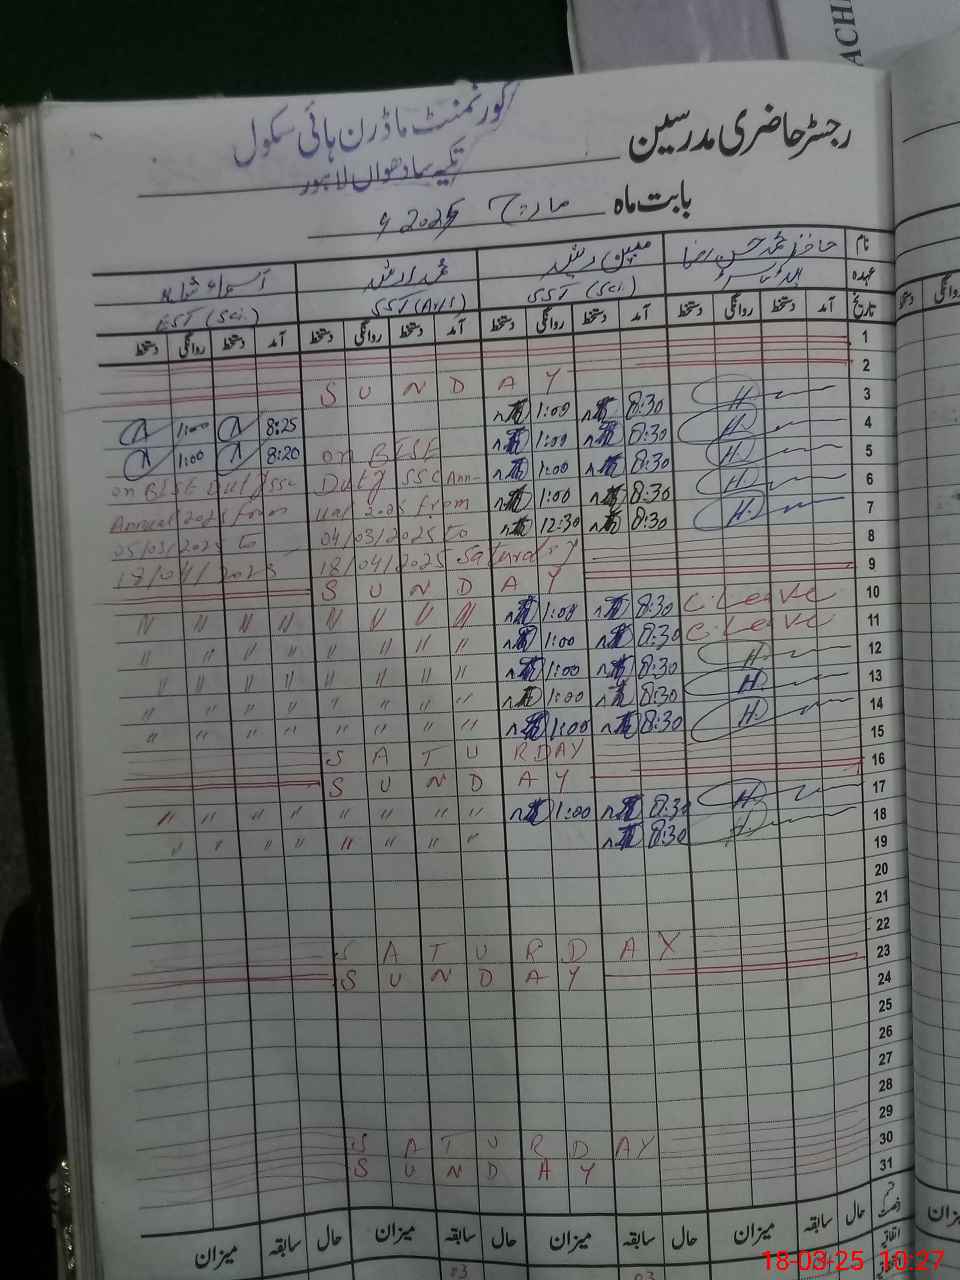 ACH
گورنمنٹ ماڈرن ہائی سکول
رجسٹر حاضری مدرسین
تکیہ سادھواں لاہور
بابت ماہ مارچ 2025ء
نام حافظ محمد حسن رضا مبین رشید محمد ارشد
عہدہ SST (Sci.) SST (Art) EST (Sci.)
تاریخ آمد دستخط روانگی دستخط آمد دستخط روانگی دستخط آمد دستخط روانگی دستخط آمد دستخط روانگی دستخط
1
2
S U N D A Y
3
1:00 8:30
4
1:00 8:25 1:00 8:30
5
1:00 8:20 on BISE 1:00 8:30
6
on BISE Duty SSC Duty SSC Ann- 1:00 8:30
7
Annual 2025 from ual 2025 from 12:30 8:30
8
05/03/2025 to 04/03/2025 to
9
18/04/2025 18/04/2025 Saturday
S U N D A Y
10
" " " " " " " " 1:00 8:30 C. Leave
11
" " " " " " " " 1:00 8:30 C. Leave
12
" " " " " " " " 1:00 8:30
13
" " " " " " " " 1:00 8:30
14
" " " " " " " " 1:00 8:30
15
S A T U R D A Y
16
S U N D A Y
17
" " " " " " " " 1:00 8:30
18
" " " " " " " " 8:30
19
20
21
22
S A T U R D A Y
23
S U N D A Y
24
25
26
27
28
29
S A T U R D A Y
30
S U N D A Y
31
حال سابقہ میزان حال سابقہ میزان حال سابقہ میزان حال سابقہ میزان
03 03
18-03-25 10:27